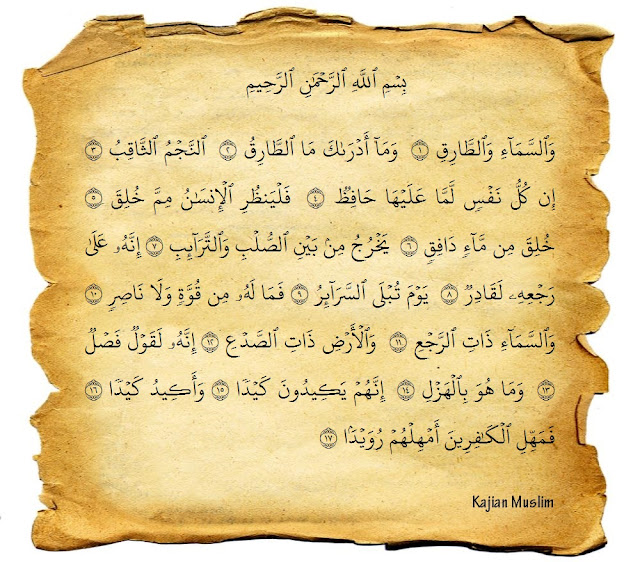 بِسْمِ ٱللَّهِ ٱلرَّحْمَٰنِ ٱلرَّحِيمِ
وَٱلسَّمَآءِ وَٱلطَّارِقِ ١ وَمَآ أَدْرَىٰكَ مَا ٱلطَّارِقُ ٢ ٱلنَّجْمُ ٱلثَّاقِبُ ٣
إِن كُلُّ نَفْسٍ لَّمَّا عَلَيْهَا حَافِظٌ ٤ فَلْيَنظُرِ ٱلْإِنسَٰنُ مِمَّ خُلِقَ ٥
خُلِقَ مِن مَّآءٍ دَافِقٍ ٦ يَخْرُجُ مِنۢ بَيْنِ ٱلصُّلْبِ وَٱلتَّرَآئِبِ ٧ إِنَّهُۥ عَلَىٰ
رَجْعِهِۦ لَقَادِرٌ ٨ يَوْمَ تُبْلَى ٱلسَّرَآئِرُ ٩ فَمَا لَهُۥ مِن قُوَّةٍ وَلَا نَاصِرٍ ١٠
وَٱلسَّمَآءِ ذَاتِ ٱلرَّجْعِ ١١ وَٱلْأَرْضِ ذَاتِ ٱلصَّدْعِ ١٢ إِنَّهُۥ لَقَوْلٌ فَصْلٌ
١٣ وَمَا هُوَ بِٱلْهَزْلِ ١٤ إِنَّهُمْ يَكِيدُونَ كَيْدًا ١٥ وَأَكِيدُ كَيْدًا ١٦
فَمَهِّلِ ٱلْكَٰفِرِينَ أَمْهِلْهُمْ رُوَيْدًۢا ١٧
Kajian Muslim